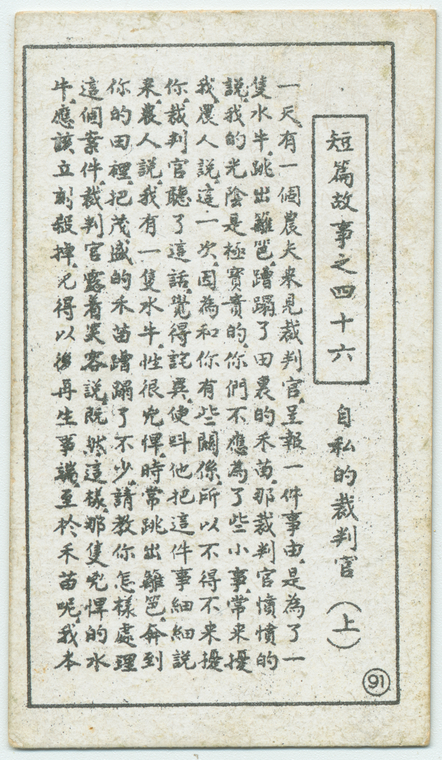 短篇故事之四十六
自私的裁判官(上)
一天,有一個農夫來見裁判官,呈報一件事由,是為了一
隻水牛,跳出籬笆,蹧蹋了田裏的禾苗,那裁判官憤憤的
說,我的光陰是極寶貴的,你們不應為了些小事,常來擾
我,農人說,這一次,因為和你有些關係,所以不得不來擾
你,裁判官聽了這話,覺得詫異,便叫他把這件事細細說
來,農人說,我有一隻水牛,性很兇悍,時常跳出籬笆,奔到
你的田裡,把茂盛的禾苗蹧蹋了不少,請教你怎樣處理
這個案件,裁判官露着笑容說,既然這樣,那隻兇悍的水
牛,應該立刻殺掉,免得以後再生事端,至於禾苗呢,我本
91